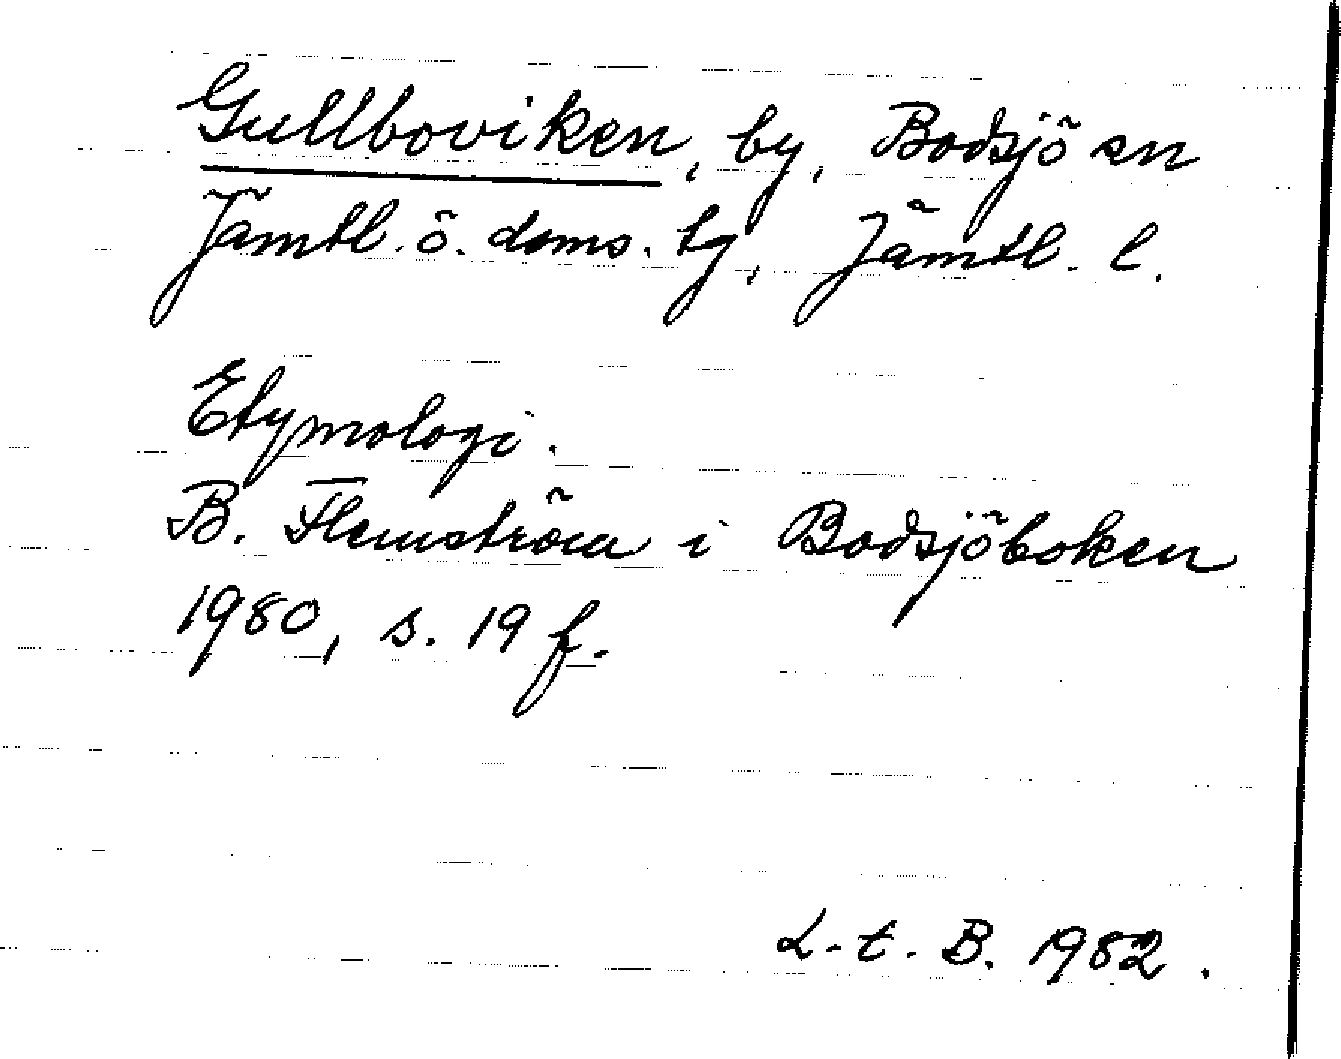 Gullboviken, by, Bodsjö sn
Jämtl. ö. doms. tg, Jämtl. l.
Etymologi.
B. Flemström i Bodsjöboken
1980, s. 19 f.
L-t. B. 1982.